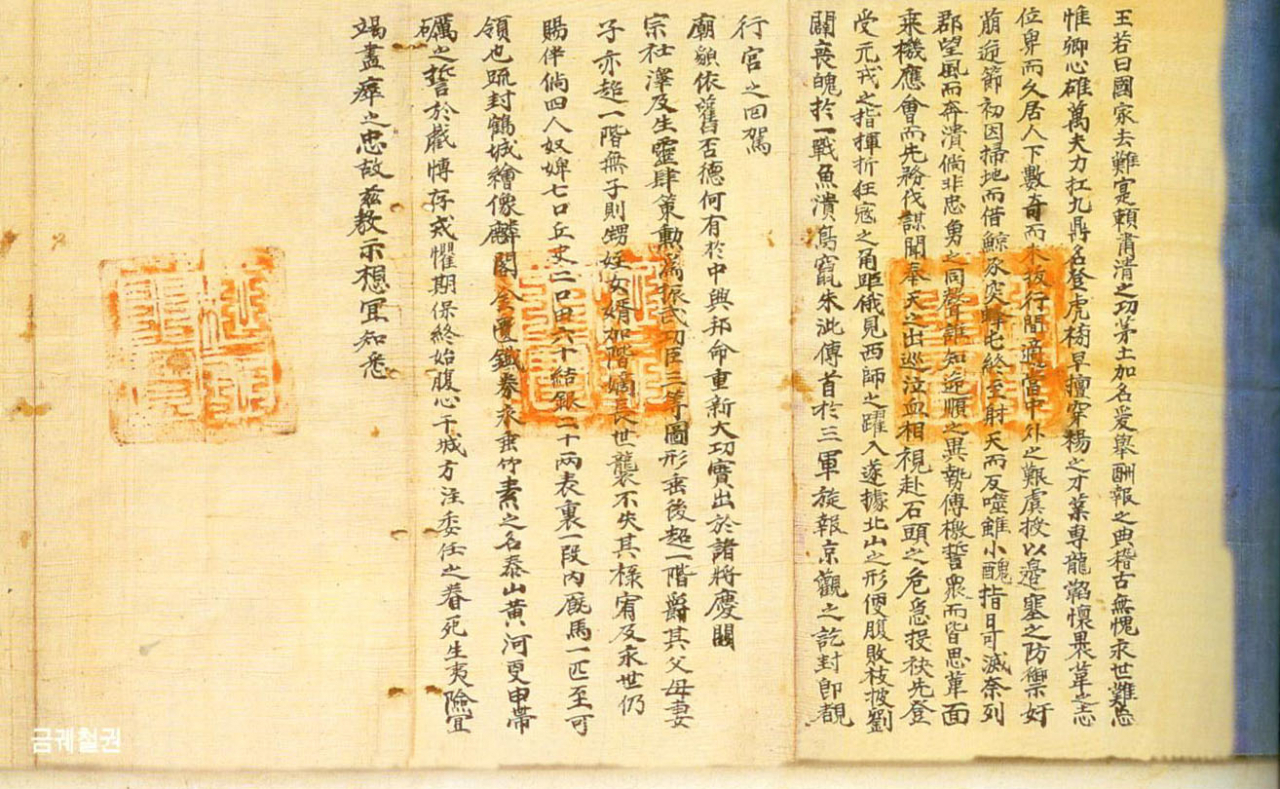 王若曰國家去難寔賴肅清之功茅土加名爰擧酬報之典稽古無愧永世難忘
惟卿心雄萬夫力扛九鼎名登虎榜早擅穿楊之才業專龍韜懷裹革之志
位卑而久居人下數奇而未拔行間適當中外之艱虞掖以邊塞之防禦奸
萌逆節初因掃地而借鯨豕突蜂屯終至射天而反噬雖小醜指日可滅奈列
郡望風而奔潰倘非忠勇之同聲誰知逆順之異勢傳檄誓衆而皆思革面
乘機應會而先務伐謀聞奉天之出巡泣血相視赴石頭之危急投袂先登
受元戎之指揮折狂寇之角距俄見西師之躍入遂據北山之形便腹敗枝披劉
闢喪魄於一戰魚潰鳥竄朱泚傳首於三軍旋報京觀之訖封卽覩
行宮之回駕
廟貌依舊否德何有於中興邦命重新大功實出於諸將慶關
宗社澤及生靈肆策勳爲振武功臣三等圖形垂後超一階爵其父母妻
子亦超一階無子則甥姪女婿加階嫡長世襲不失其祿宥及永世仍
賜伴倘四人奴婢七口丘史二口田六十結銀二十兩表裏一段內廐馬一匹至可
領也疏封鶴城繪像麟閣金匱鐵券永垂竹素之名泰山黃河更申帶
礪之誓於戲慱存戒懼期保終始腹心干城方注委任之眷死生夷險宜
竭盡瘁之忠故玆敎示想宜知悉
금궤철권